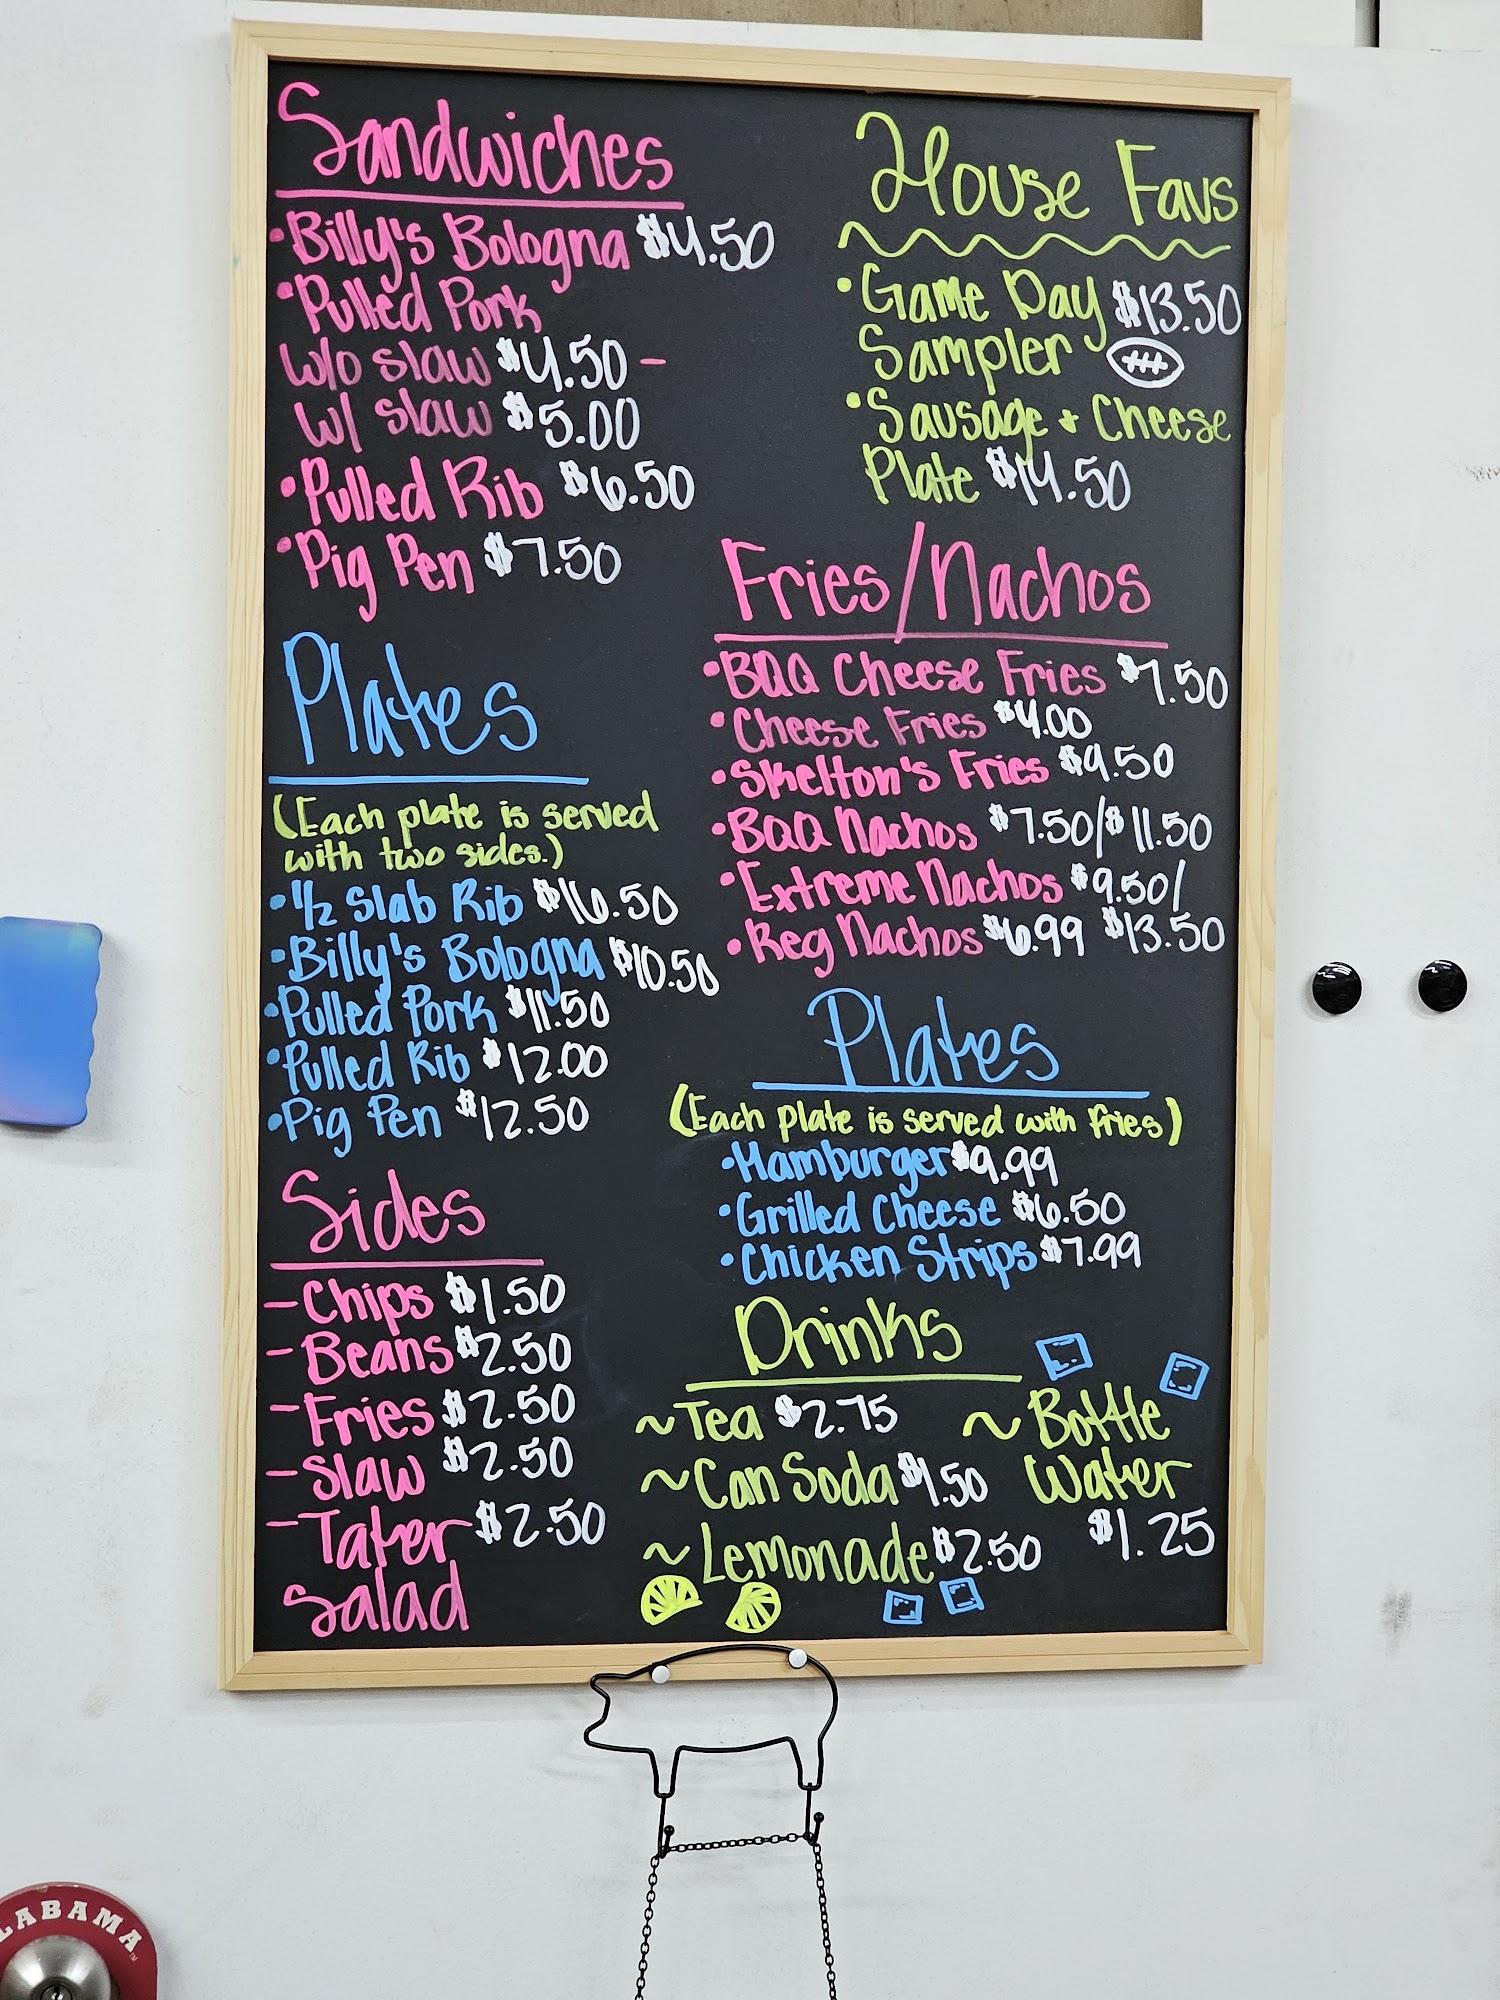 Sandwiches
•Billy's Bologna $4.50
•Pulled Pork
w/o slaw $4.50 -
w/ slaw $5.00
•Pulled Rib $6.50
•Pig Pen $7.50
Plates
(Each plate is served
with two sides.)
•1/2 Slab Rib $16.50
•Billy's Bologna $10.50
•Pulled Pork $11.50
•Pulled Rib $12.00
•Pig Pen $12.50
Sides
-Chips $1.50
-Beans $2.50
-Fries $2.50
-Slaw $2.50
-Tater $2.50
Salad
House Favs
•Game Day $13.50
Sampler
•Sausage + Cheese
Plate $14.50
Fries/Nachos
•BQQ Cheese Fries $7.50
•Cheese Fries $4.00
•Skelton's Fries $9.50
•BQQ Nachos $7.50/$11.50
•Extreme Nachos $9.50/
$13.50
•Reg Nachos $6.99
Plates
(Each plate is served with fries)
•Hamburger $9.99
•Grilled Cheese $6.50
•Chicken Strips $7.99
Drinks
~Tea $2.75
~Can Soda $1.50
~Lemonade $2.50
~Bottle
Water
$1.25
LABAMA